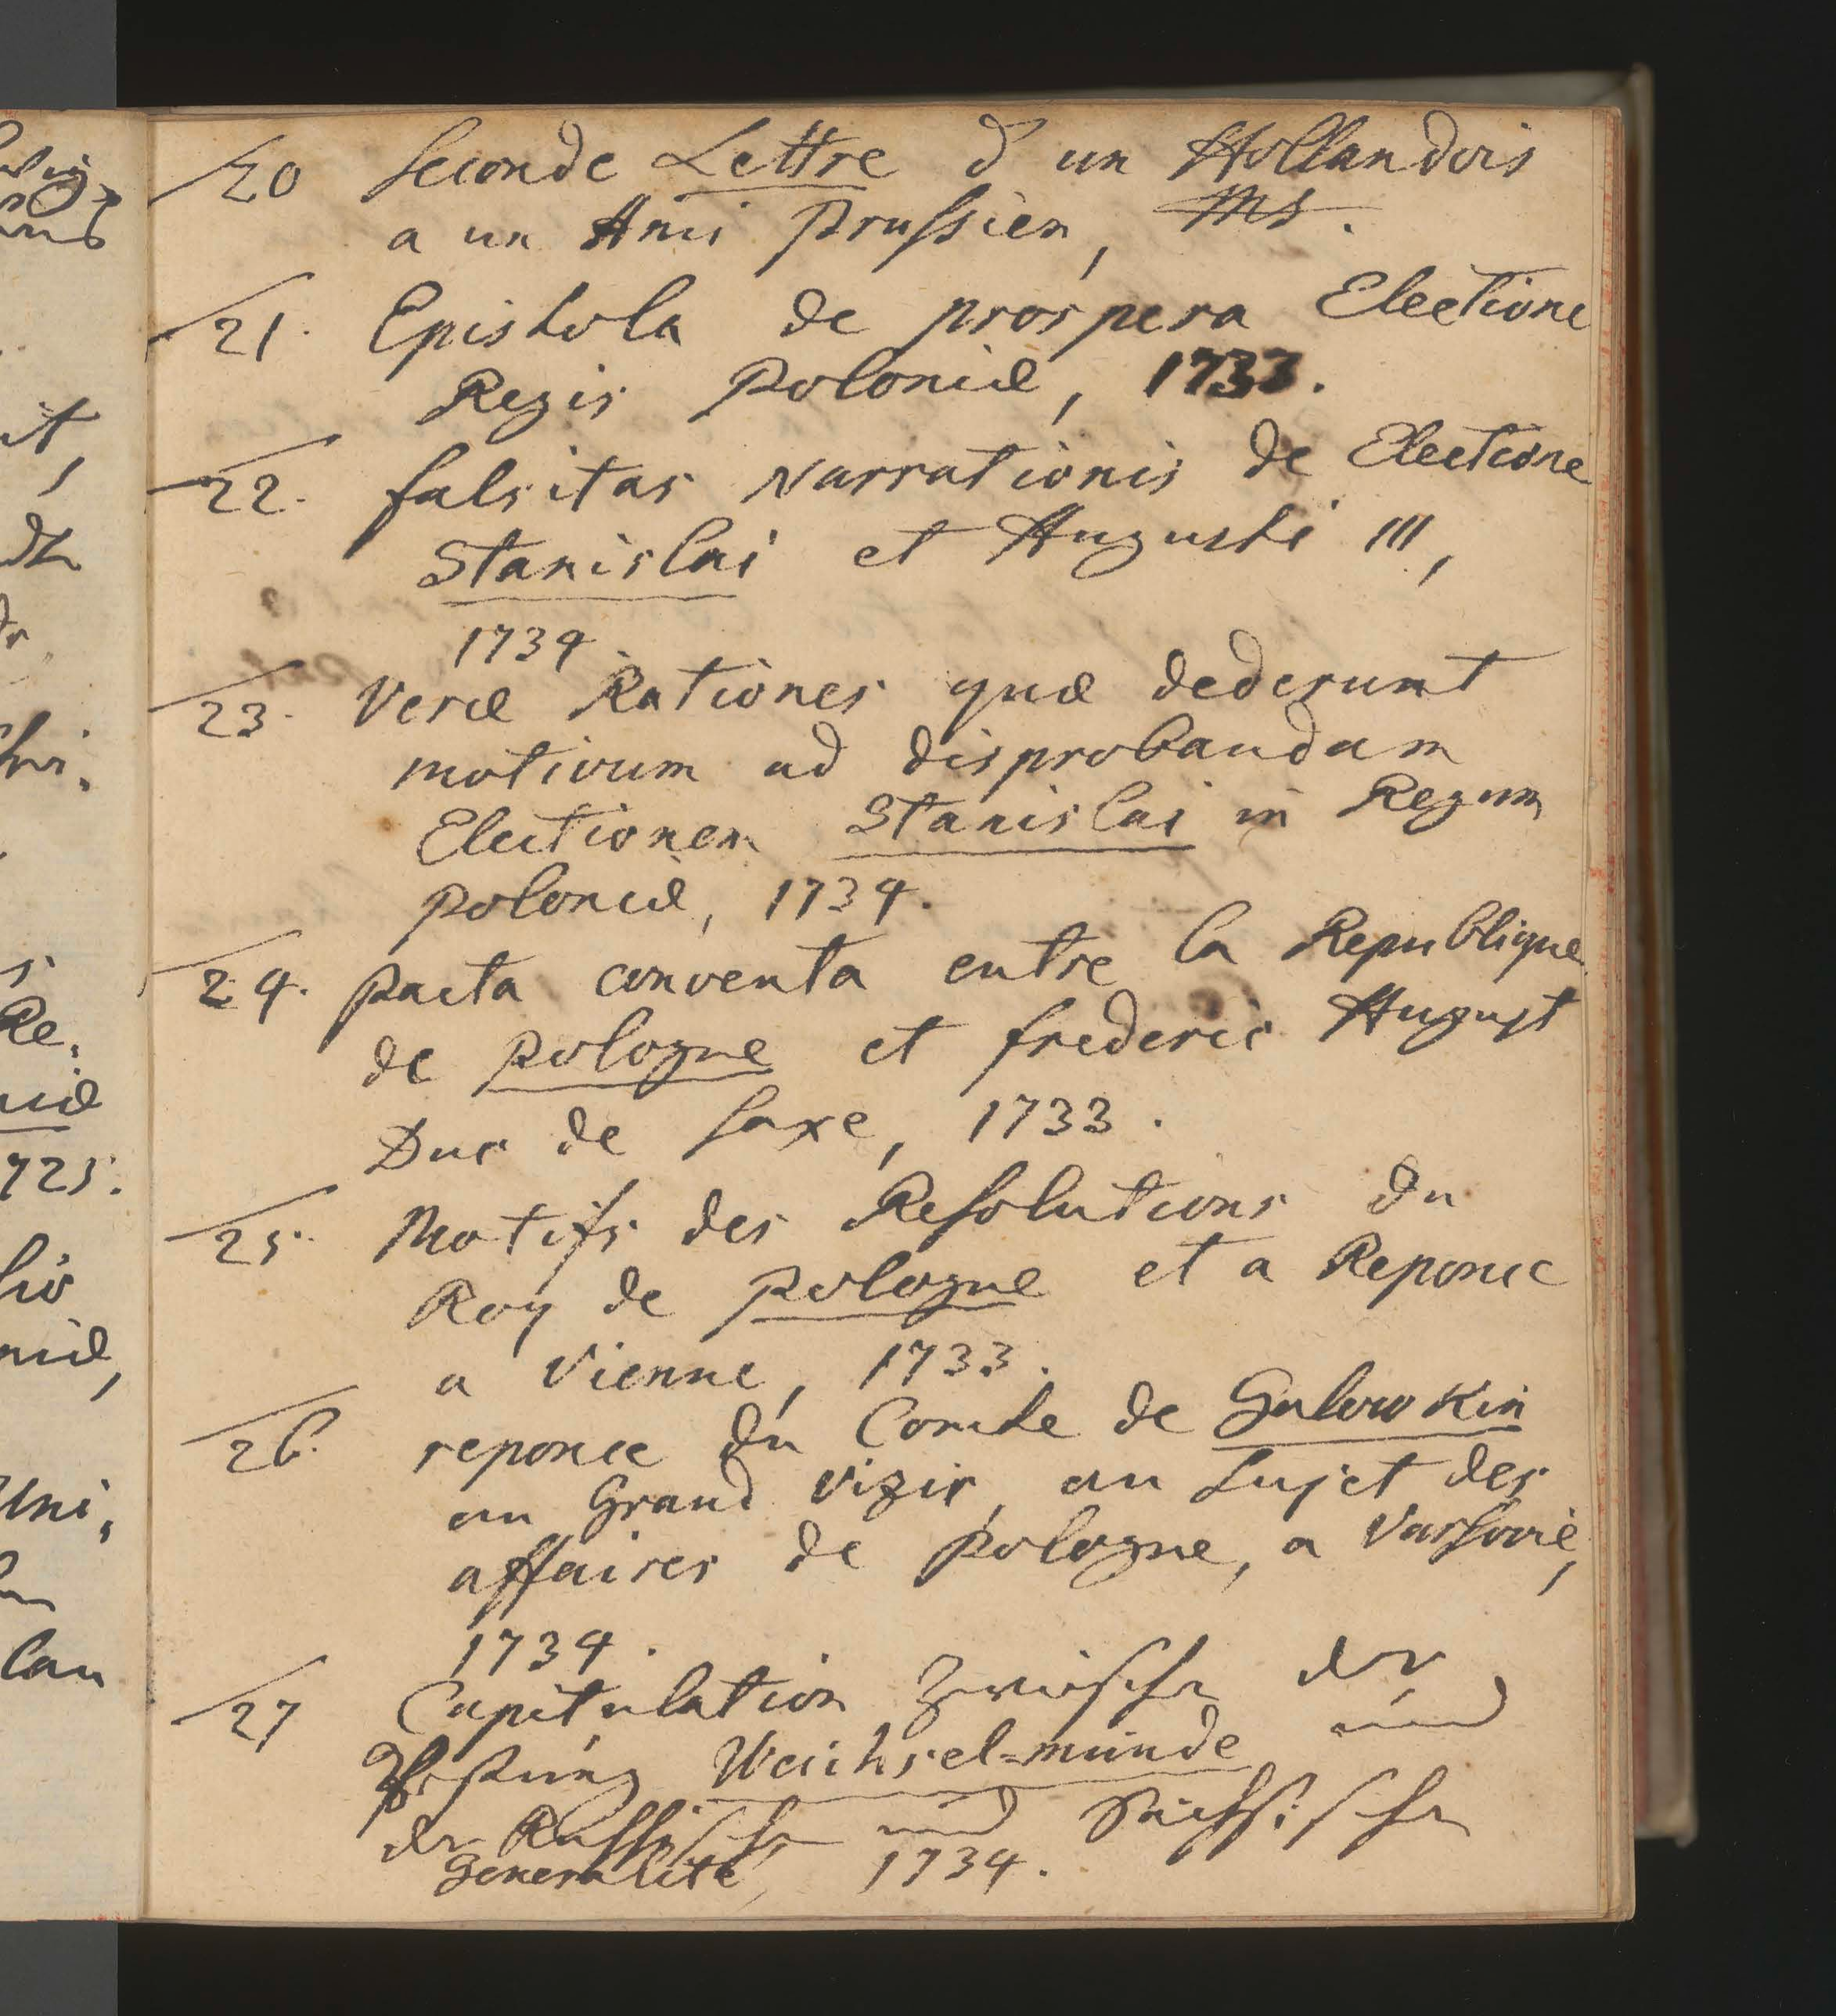 20 Seconde Lettre d'un Hollandois
a un Ami Prussien, Ms.
21. Epistola de prospera Electione
Regis Poloniæ, 1733.
22. falsitas Narrationis de Electione
Stanislai et Augusti III,
1734.
23. Veræ Rationes quæ dederunt
motivum ad disprobandam
Electionem Stanislai in Regem
Poloniæ, 1734.
24. Pacta conventa entre la Republique
de Pologne et frederic August
Duc de Saxe, 1733.
25. Motifs des Resolutions du
Roy de Pologne et a Reponce
a Vienne, 1733.
26. reponce du Comte de Golowkin
au Grand Vizir, au Sujet des
affaires de Pologne, a Varsovie,
1734.
27 Capitulation Zwischen der
Vestung Weichsel-münde und
der Russischen und Sächsischen
Generalité, 1734.
it,
Re.
725.
Uni,